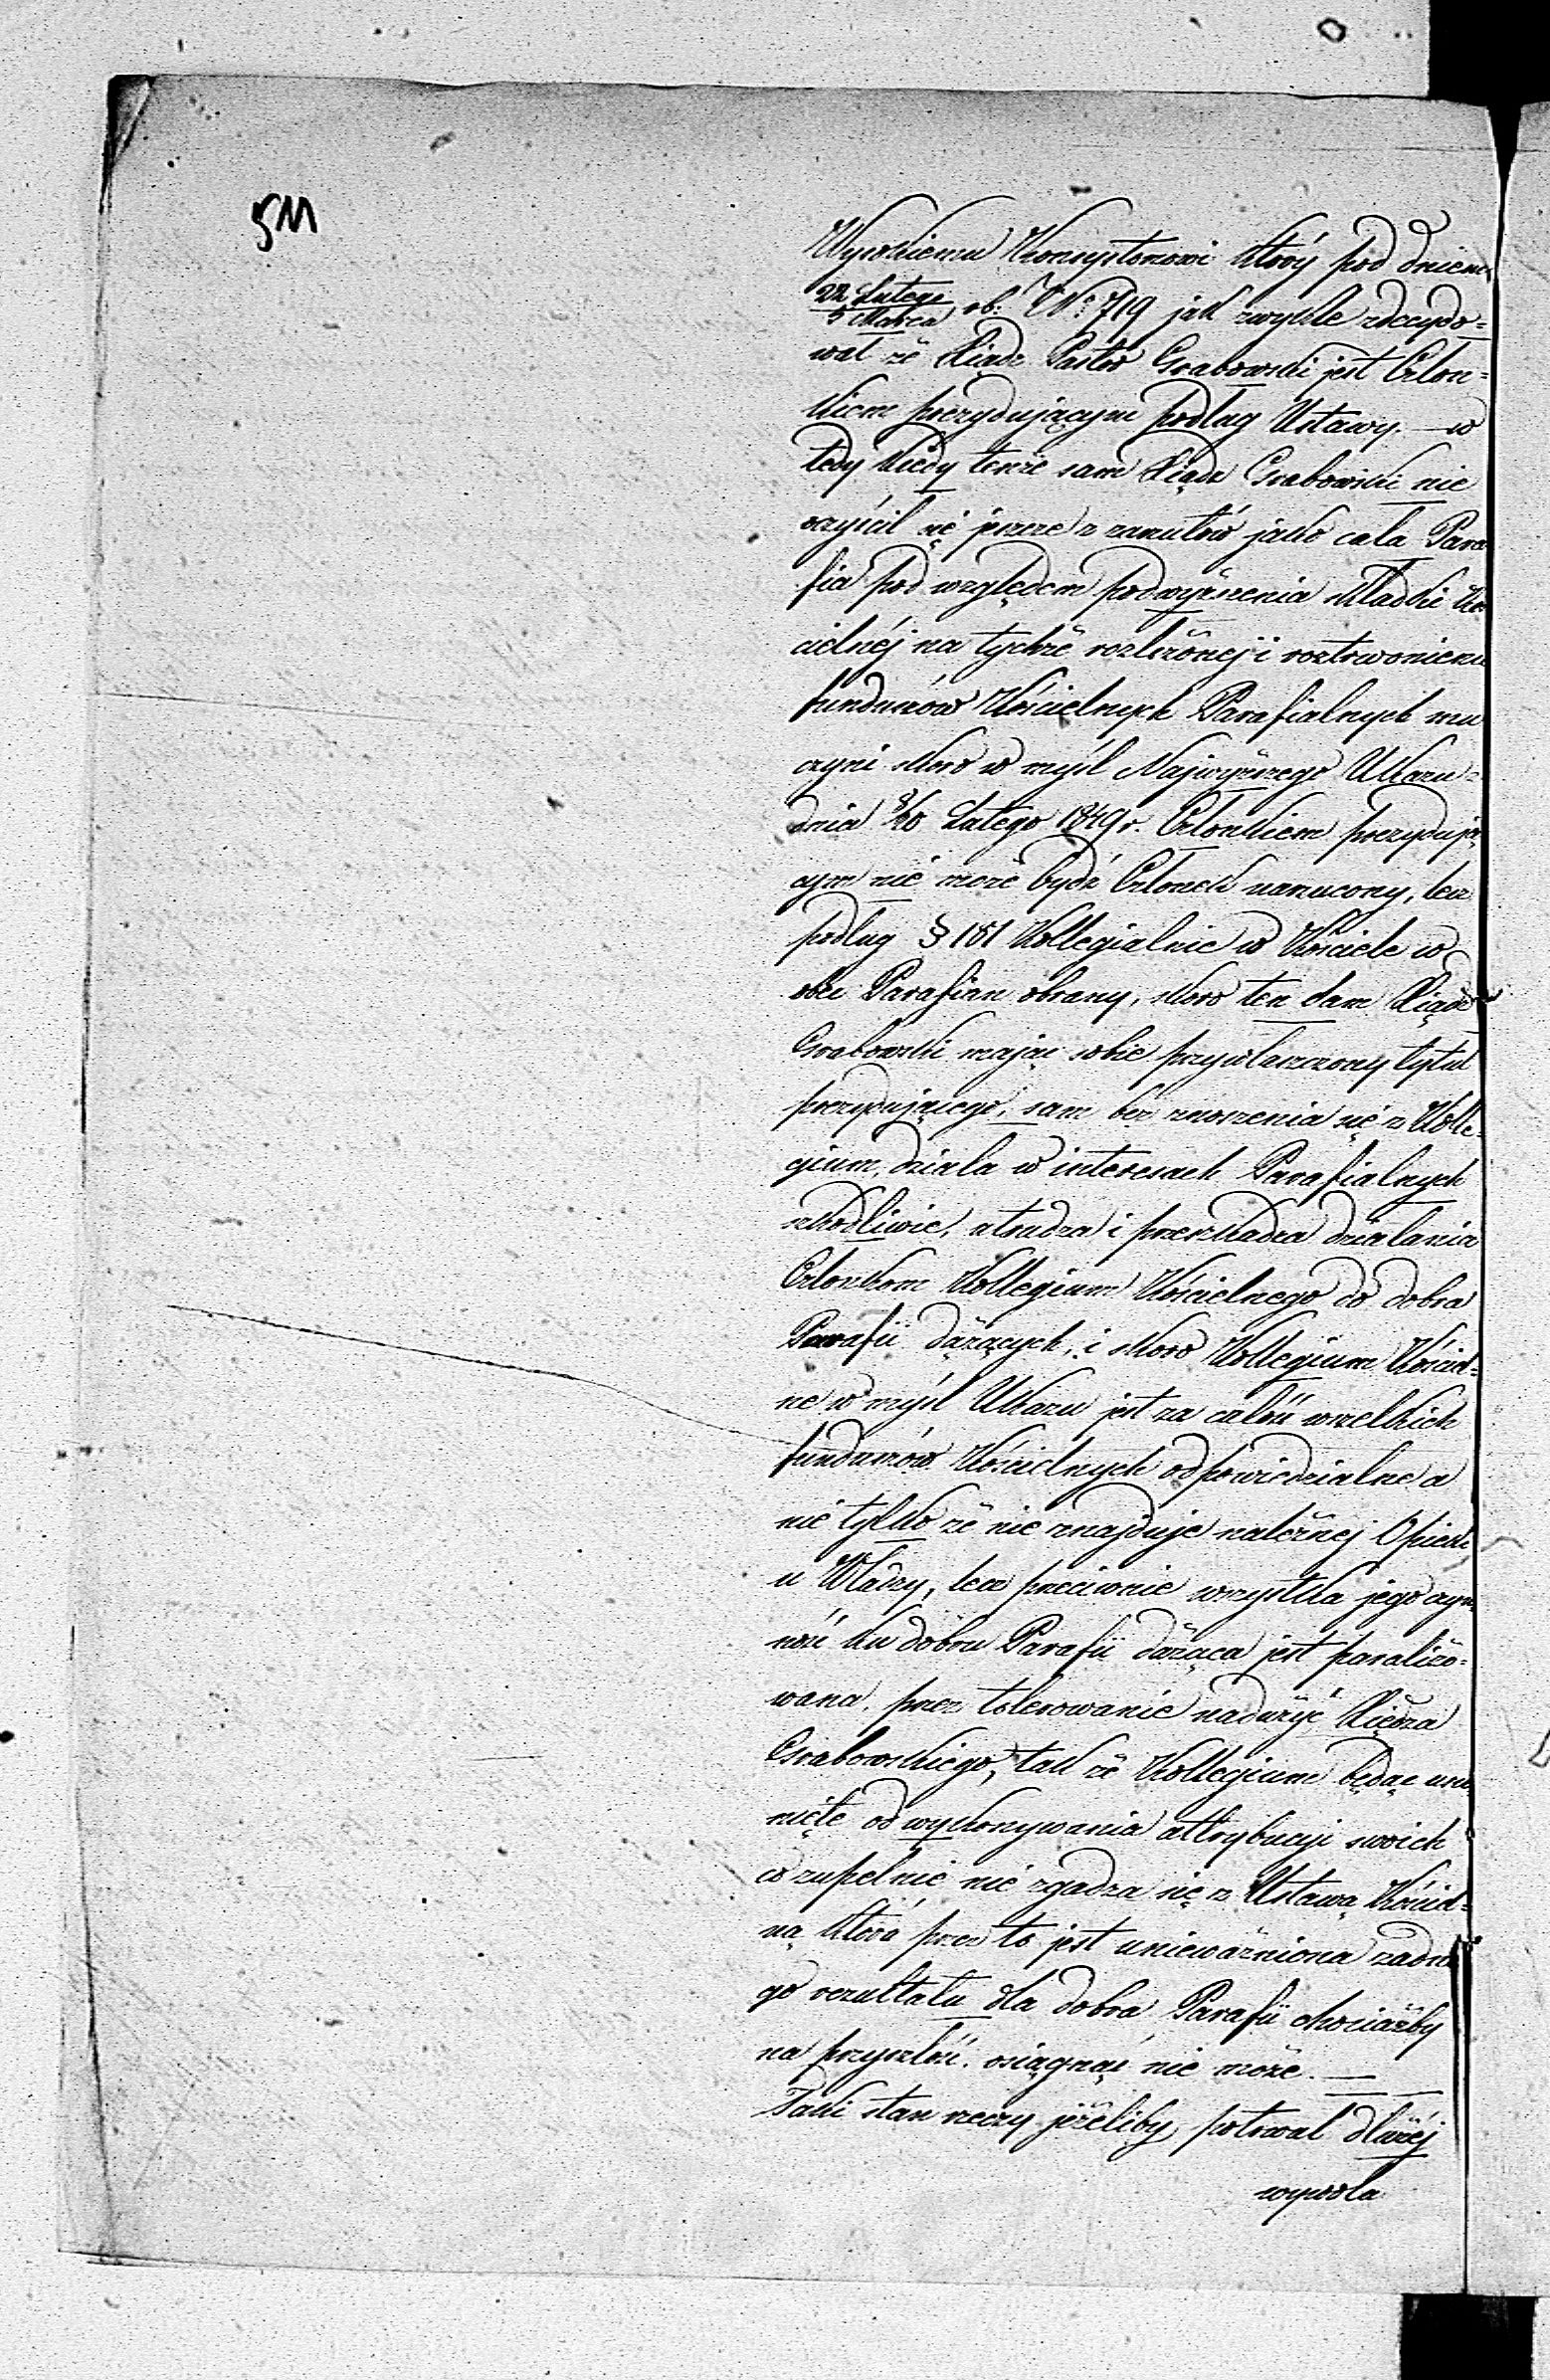 511
Wysokiemu Konsystorowi który pod dniem
22 Lutego
5 Marca rb. No 719 jak zwykle zdecydo=
wał że Xiądz Pastor Grabowski jest Człon=
kiem prezydującym podług Ustawy. — w
tedy kiedy tenże sam Xiądz Grabowski nie
oczyścił się jeszcze z zarzutów jakie cała Para
fia pod względem podwyższenia składki Koś
cielnéj na tychże rozłożonej i roztrwonieniu
funduszów Kościelnych Parafialnych mu
czyni skoro w myśl Najwyższego Ukazu z
dnia 8/20 Lutego 1849 r. Członkiem prezydują
cym nie może bydź Członek narzucony, lecz
podług § 181 Kollegialnie w Kościele w
obec Parafian obrany, skoro ten sam Xiądz
Grabowski mając sobie przywłaszczony tytuł
prezydującego, sam bez znoszenia się z Kolle=
gium, działa w interesach Parafialnych
szkodliwie, utrudza i przeszkadza działania
Członkom Kollegium Kościelnego do dobra
Parafii dążących, i skoro Kollegium Kościel=
ne w myśl Ukazu jest za całość wszelkich
funduszów Kościelnych odpowiedzialne a
nie tylko że nie znajduje należnej Opieki
u Władzy, lecz przeciwnie wszystka jego czyn
ność ku dobru Parafii dążąca jest paraliżo=
wana, przez tolerowanie nadużyć Xiędza
Grabowskiego, tak że Kollegium będąc usu
nięte od wykonywania attrybucyi swoich
co zupełnie nie zgadza się z Ustawą Kościel=
ną która przez to jest unieważniona żadne
go rezultatu dla dobra Parafii chociażby
na przyszłość osiągnąć nie może. —
Taki stan rzeczy jeżeliby potrwał dłużéj
wywoła